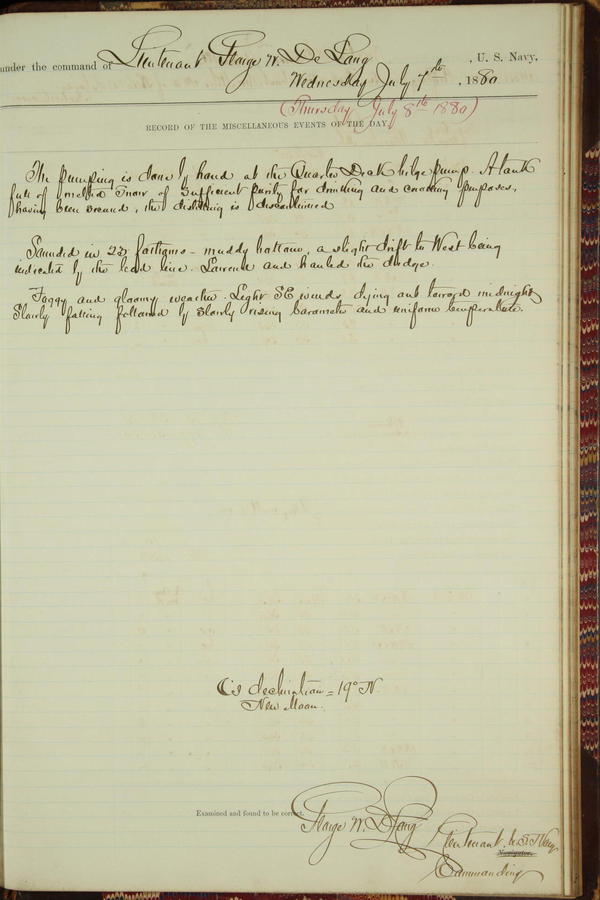 under the command of Lieutenant George W. De Long, U. S. Navy.
Wednesday July 7th, 1880
(Thursday July 8th 1880)
RECORD OF THE MISCELLANEOUS EVENTS OF THE DAY.
The pumping is done by hand at the Quarter Deck bilge pump. A tank
full of melted snow of sufficient purity for drinking and cooking purposes,
having been secured, the distilling is discontinued.
Sounded in 23 fathoms - muddy bottom, a slight drift to West being
indicated by the lead line. Lowered and hauled the dredge.
Foggy and gloomy weather. Light SE winds dying out toward midnight
Slowly falling followed by slowly rising barometer and uniform temperature.
☾'s declination = 19° N.
New Moon.
Examined and found to be correct.
George W. De Long
Lieutenant, U.S. Navy
Navigator.
Commanding